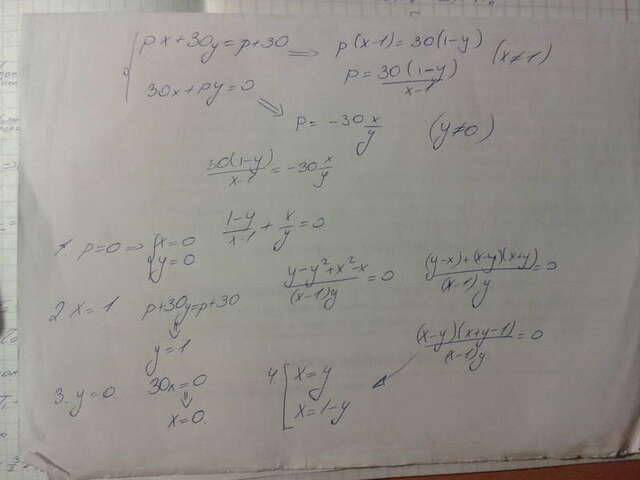 { px+30y=p+30 ⇒ p(x-1)=30(1-y)
p=30(1-y)/(x-1) (x≠1)
30x+py=0
⇒ p=-30x/y (y≠0)
30(1-y)/(x-1)=-30x/y
(1-y)/(x-1)+x/y=0
1 p=0⇒ {x=0
y=0
(y-y²+x²-x)/((x-1)y)=0 ((y-x)+(x-y)(x+y))/((x-1)y)=0
2. x=1 p+30y=p+30
⇓
y=1
((x-y)(x+y-1))/((x-1)y)=0
3. y=0 30x=0
⇓
x=0.
4. [ x=y
x=1-y